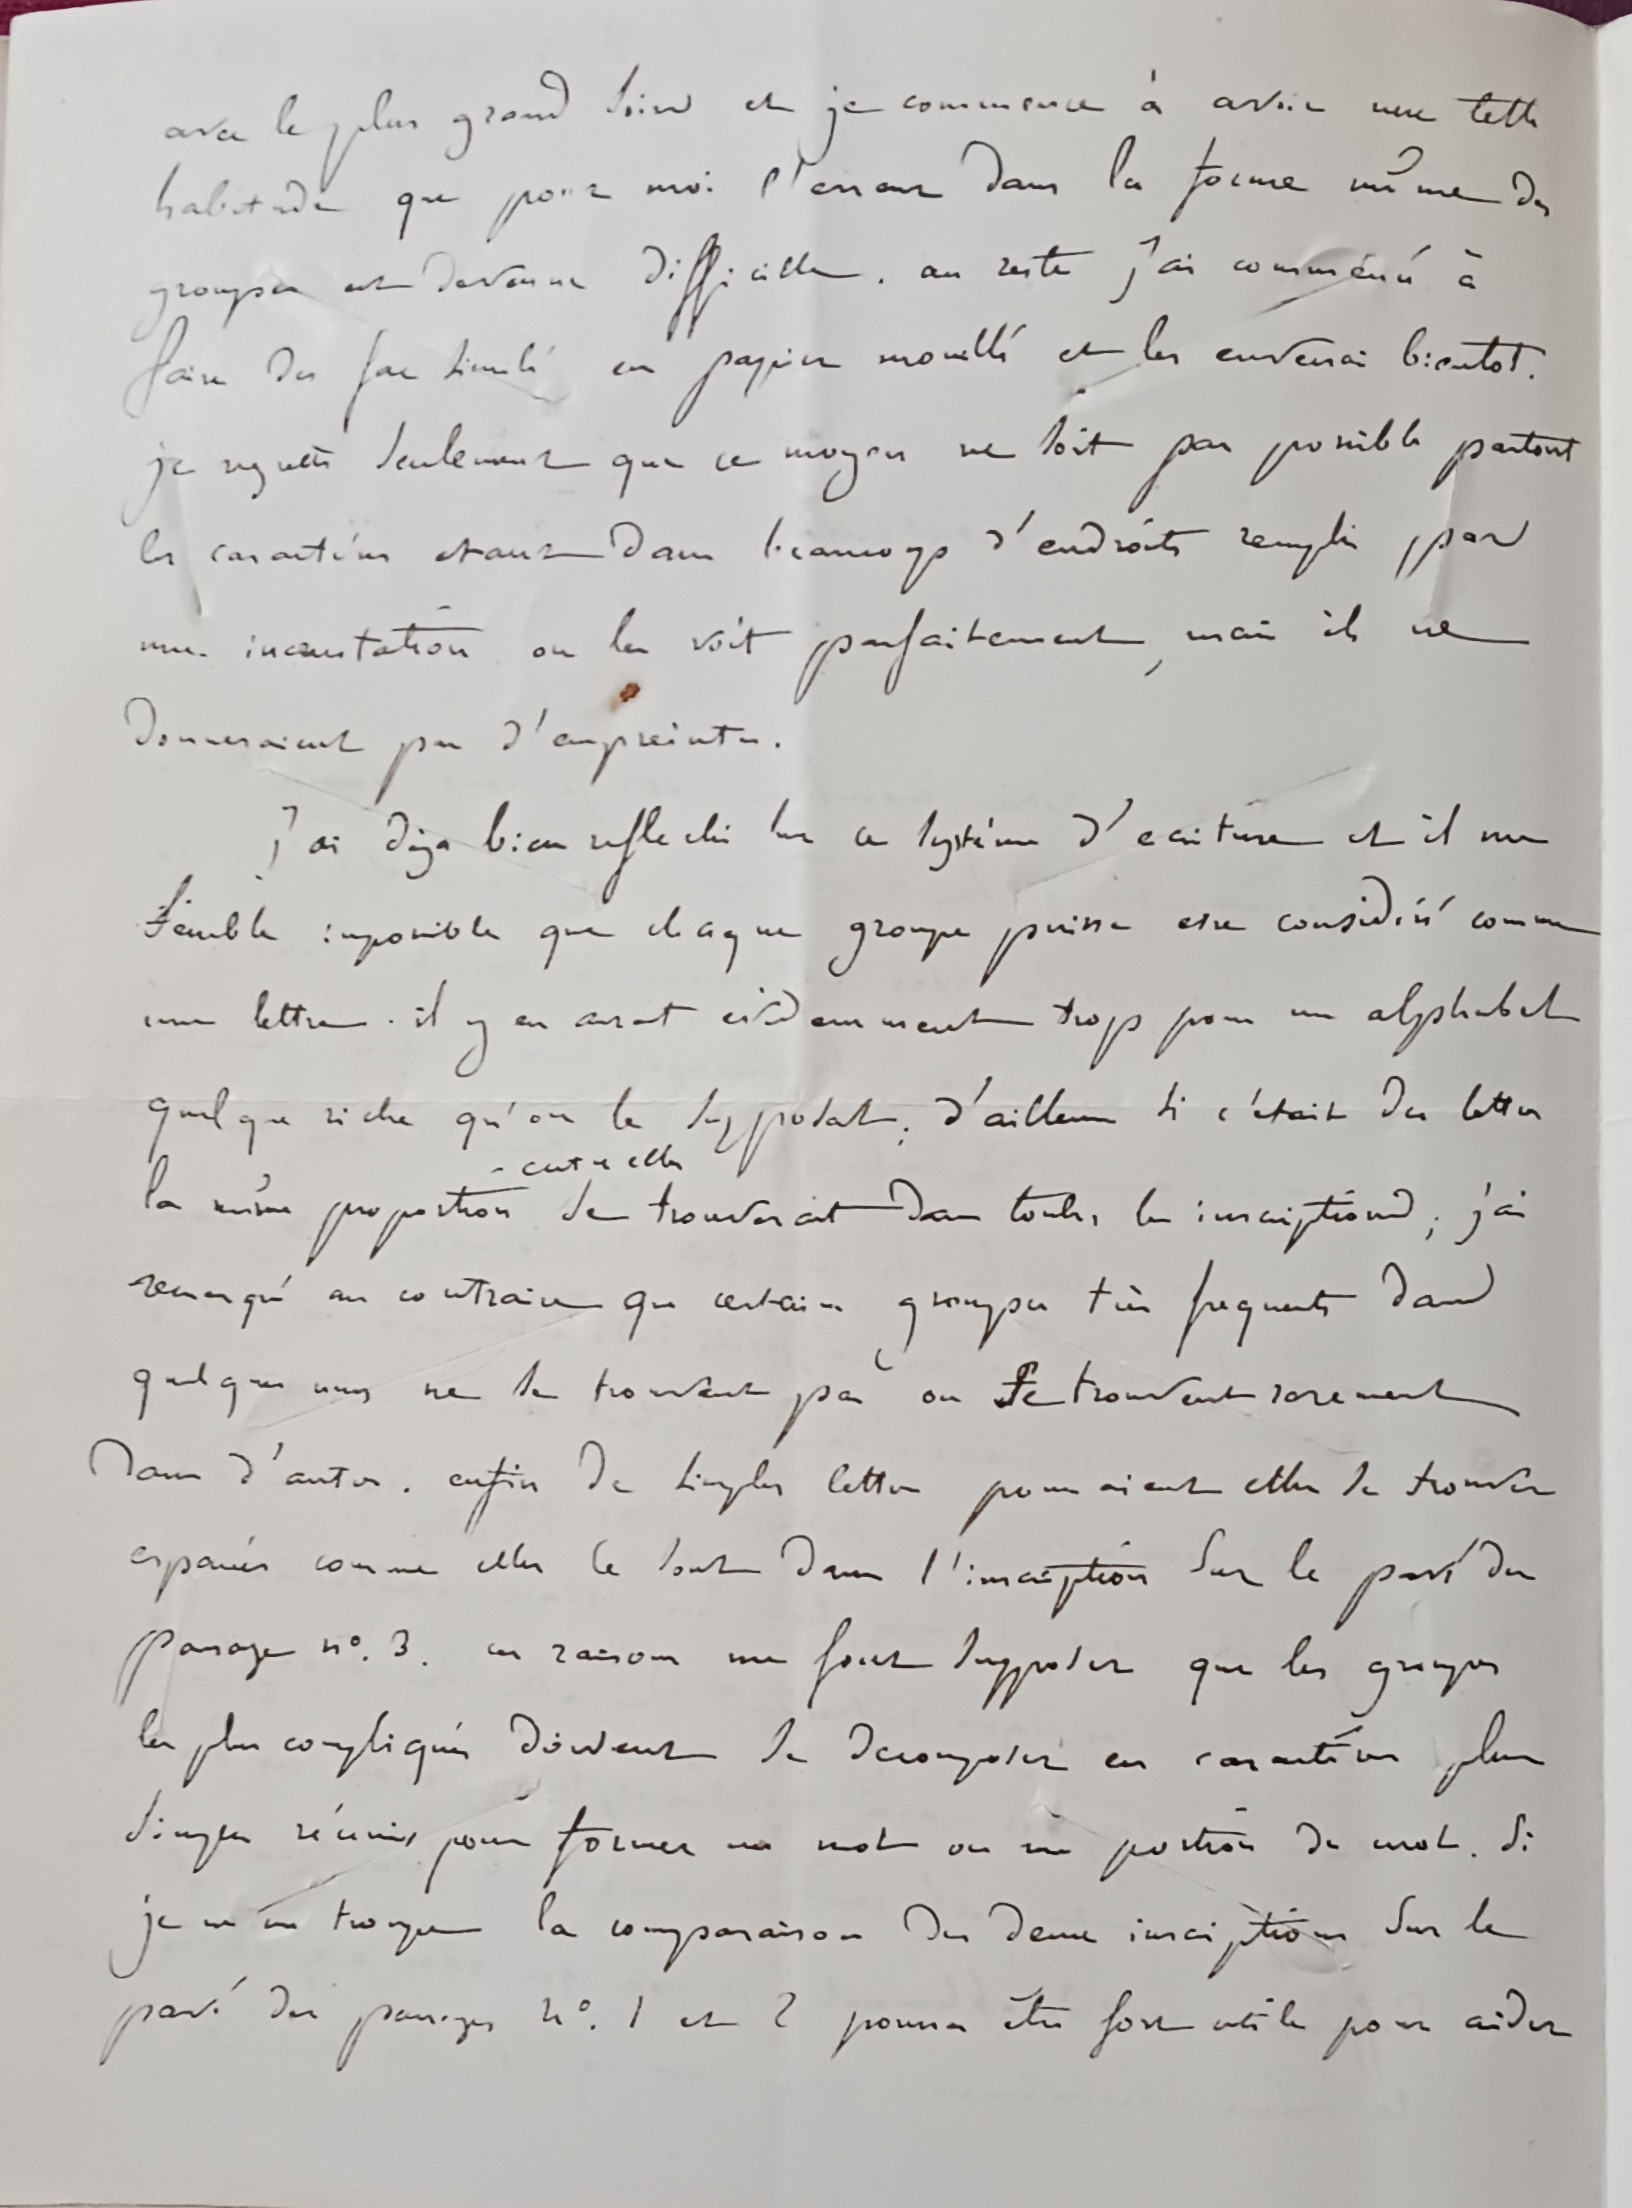 avec le plus grand soin et je commence à avoir une telle
habitude que pour moi l'erreur dans la forme même des
groupes est devenue difficille. au reste j'ai commencé à
faire des fac similé en papier mouillé et les enverrai bientot.
je regrette seulement que ce moyen ne soit pas possible partout
les caractères etant dans beaucoup d'endroits remplis par
une incrustation on les voit parfaitement, mais ils ne
donneraient pas d'empreintes.
J'ai deja bien reflechi sur ce système d'ecriture et il me
semble impossible que chaque groupe puisse etre considéré comme
une lettre. il y en aurait evidemment trop pour un alphabet
quelque riche qu'on le supposat; d'ailleurs si c'etait des lettres
- entre elles
la même proportion se trouverait dans toutes les inscriptions; j'ai
remarqué au contraire que certains groupes très frequents dans
quelques unes ne se trouvent pas ou se trouvent rarement
dans d'autres. enfin de simples lettres pourraient elles se trouver
espacées comme elles le sont dans l'inscription sur le pavé du
passage n°. 3. ces raisons me font supposer que les groupes
les plus compliqués doivent se decomposer en caractères plus
simples réunis pour former un mot ou une portion de mot. Si
je ne me trompe la comparaison des deux inscriptions sur le
pavé des passages n°. 1 et 2 pourra être fort utile pour aider